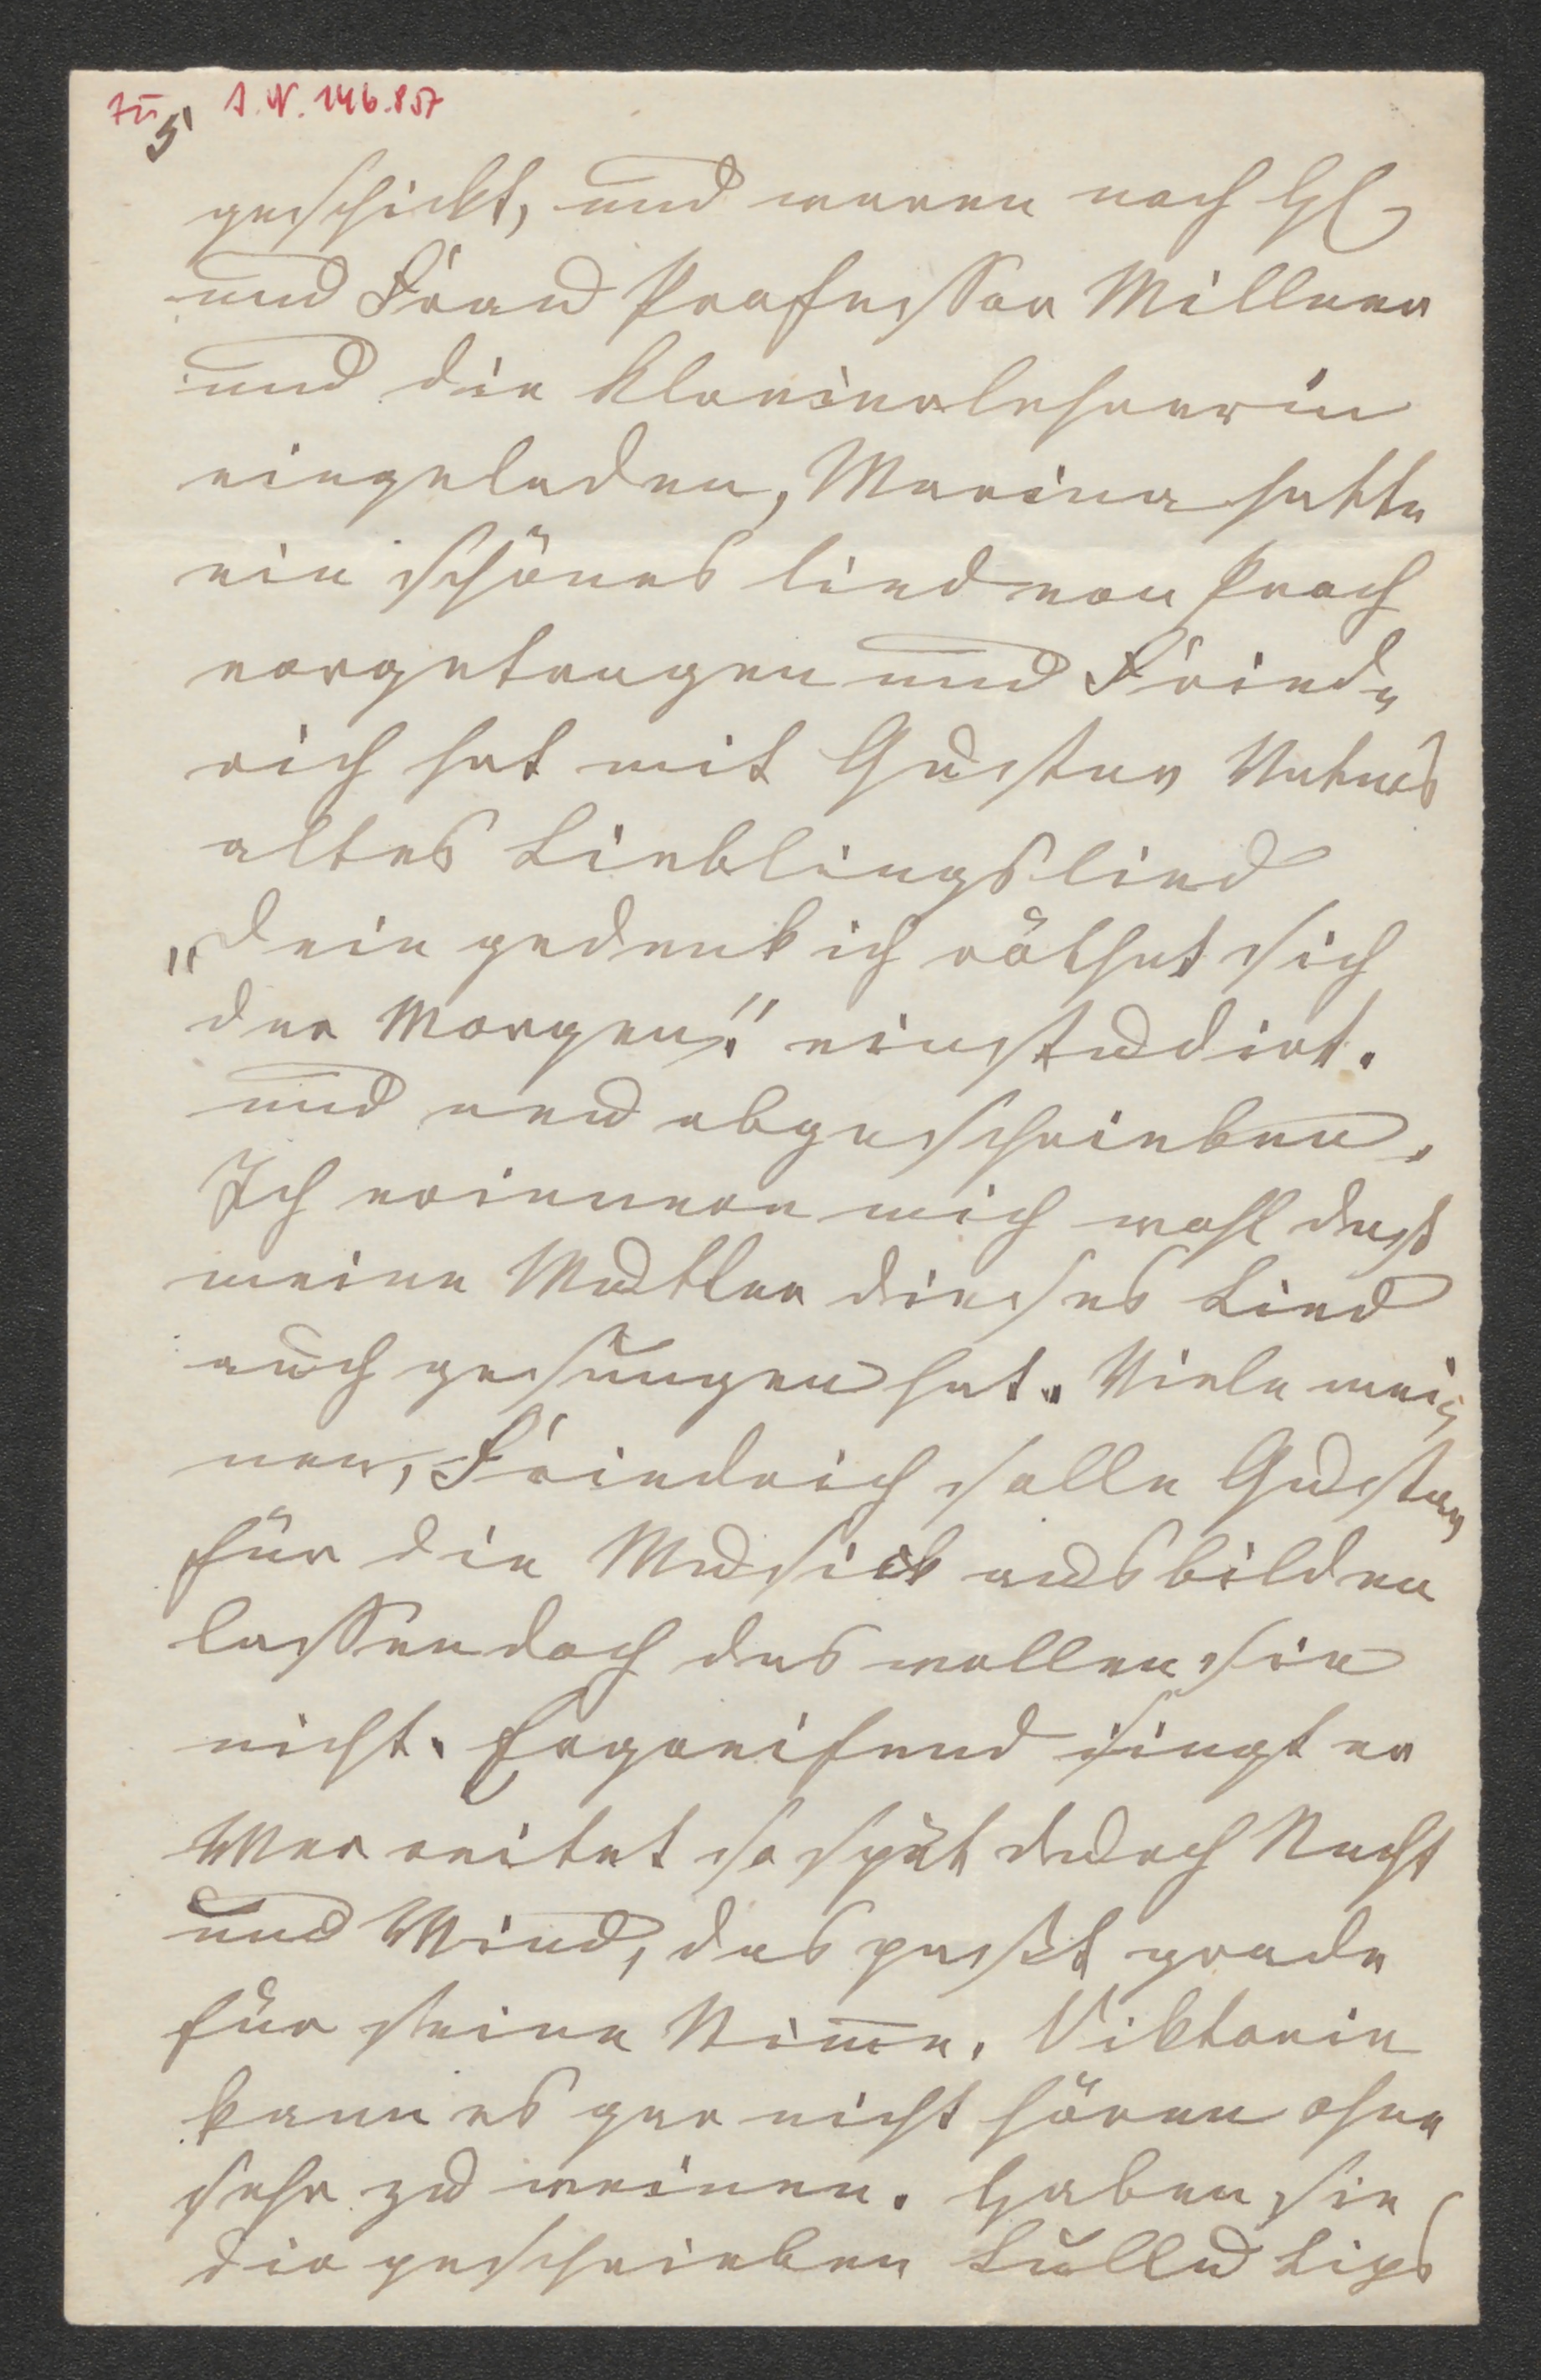 zu I.N. 146.857
5
geschickt, und waren noch H
und Frau Professor Millner
und die Klavierlehrerin
eingeladen, Marina hatte
ein schönes Lied von Proch
vorgetragen und Fried-
rich hat mit Gustav Vaters
altes Lieblingslied
„dein gedenk ich röthet sich
der Morgen." einstudirt.
und neu abgeschrieben.
Ich erinnere mich wohl dass
meine Mutter dieses Lied
auch gesungen hat. Viele mei-
nen, Friedrich solle Gustav
für die Musick ausbilden
lassen doch das wollen sie
nicht. Ergreifend singt er
Wer reitet so spät durch Nacht
und Wind, das passt grade
für seine Stimme. Viktorin
kann es gar nicht hören ohne
sehr zu weinen. Haben sie
dir geschrieben Lips